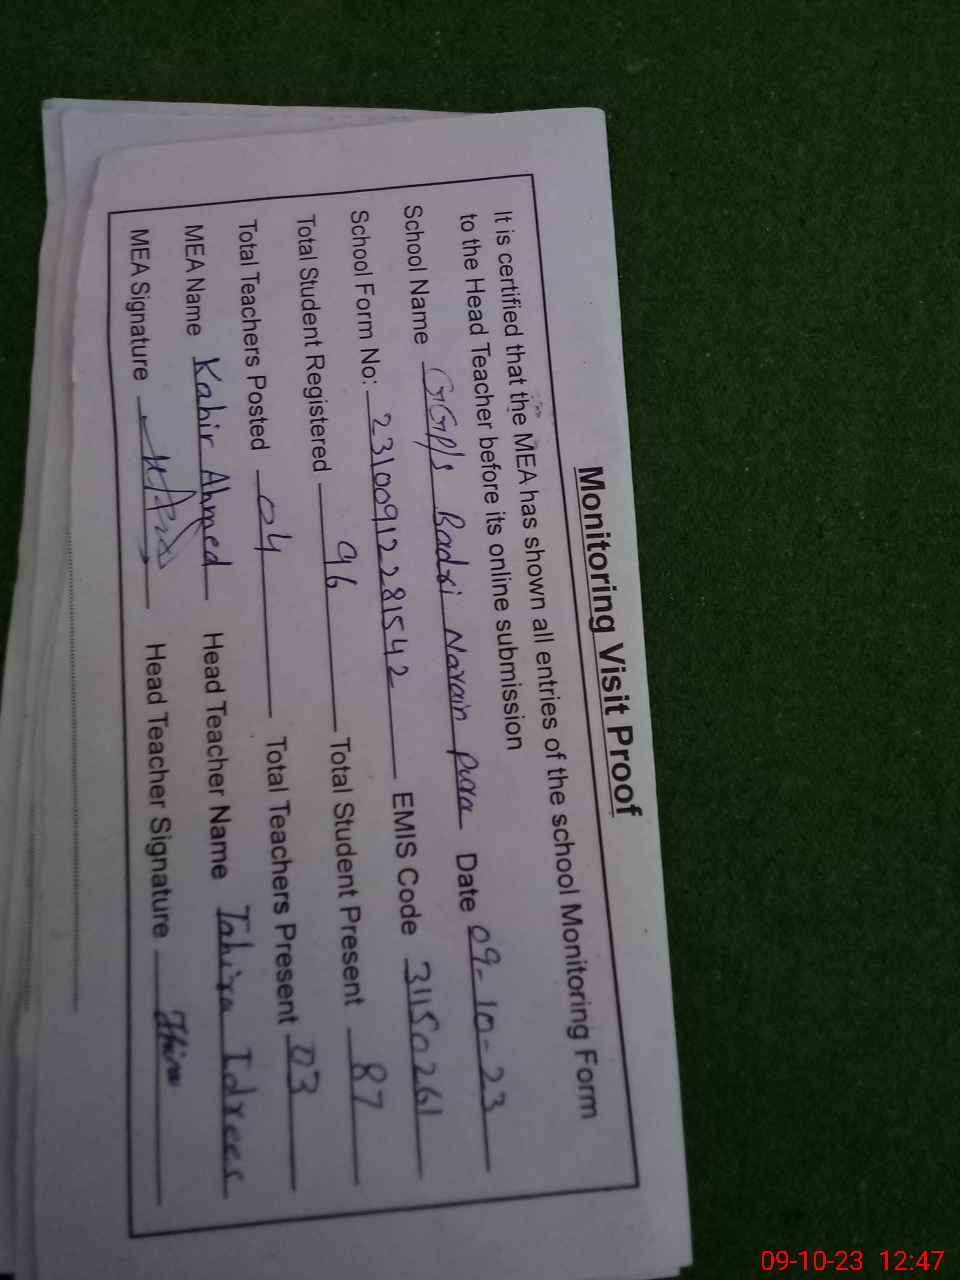 Monitoring Visit Proof
It is certified that the MEA has shown all entries of the school Monitoring Form
to the Head Teacher before its online submission
School Name GGP/S Badri Narain pura Date 09-10-23
School Form No: 23100912281542 EMIS Code 31150261
Total Student Registered 96 Total Student Present 87
Total Teachers Posted 04 Total Teachers Present 03
MEA Name Kabir Ahmed Head Teacher Name Tahira Idrees
MEA Signature Head Teacher Signature
09-10-23 12:47